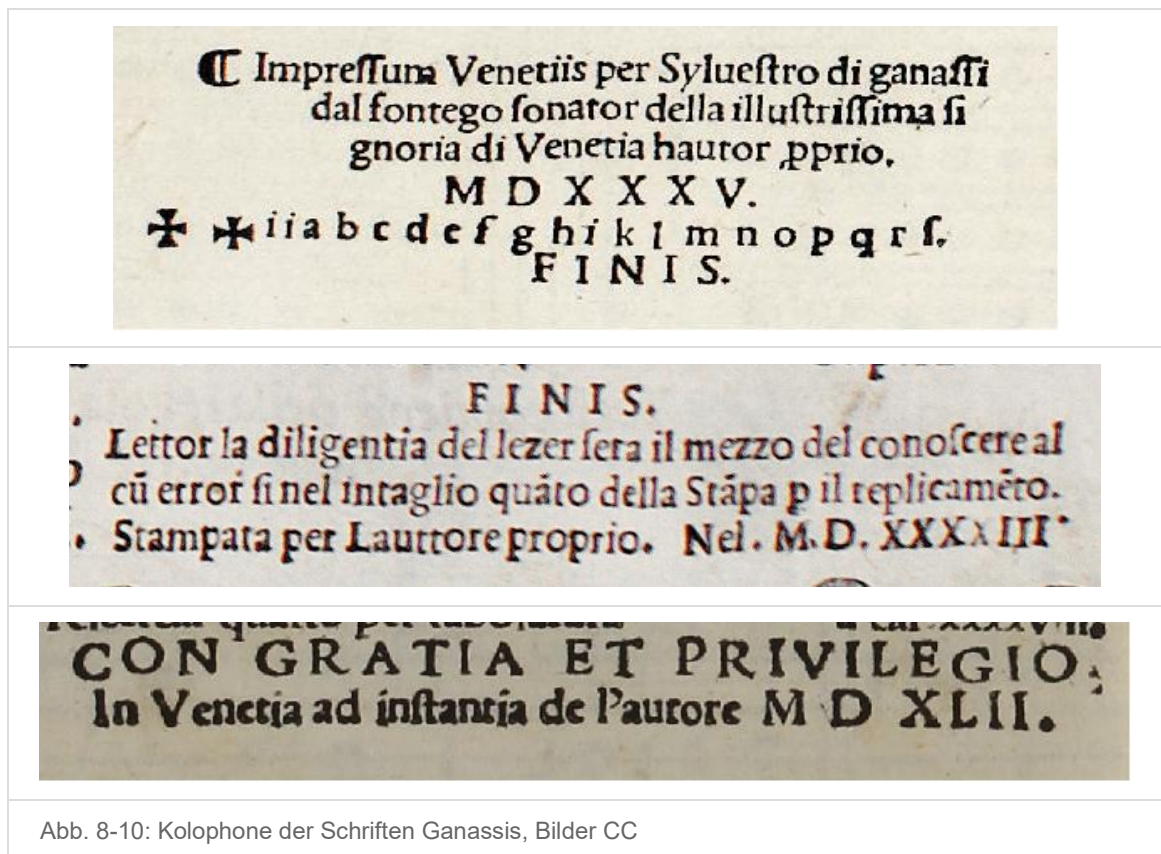 ☾ Impreſſum Venetiis per Sylueſtro di ganaſſi
dal fontego ſonator della illuſtriſſima ſi
gnoria di Venetia hautor ꝓprio.
M D X X X V.
✠ ✠ i i a b c d e f g h i k l m n o p q r ſ.
F I N I S.
F I N I S.
Lettor la diligentia del lezer ſera il mezzo del conoſcere al
cū error ſi nel intaglio quāto della Stāpa ꝑ il replicamēto.
Stampata per Lauttore proprio. Nel. M.D.XXXXIII
CON GRATIA ET PRIVILEGIO.
In Venetia ad inſtantia de l'autore M D XLII.
Abb. 8-10: Kolophone der Schriften Ganassis, Bilder CC